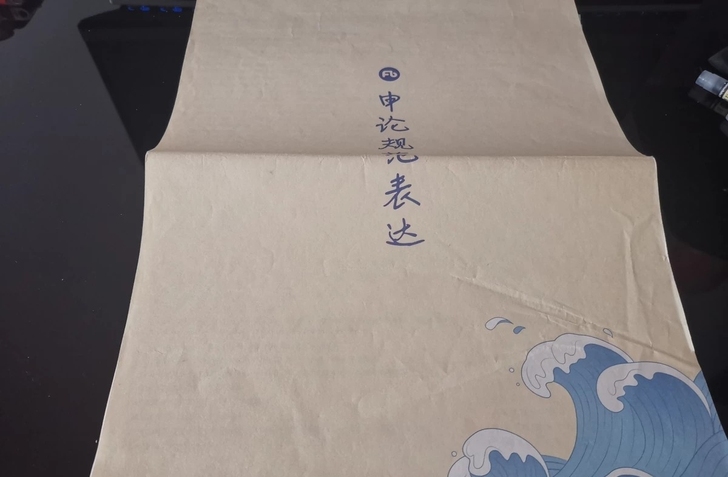 Fb
申论规范表达